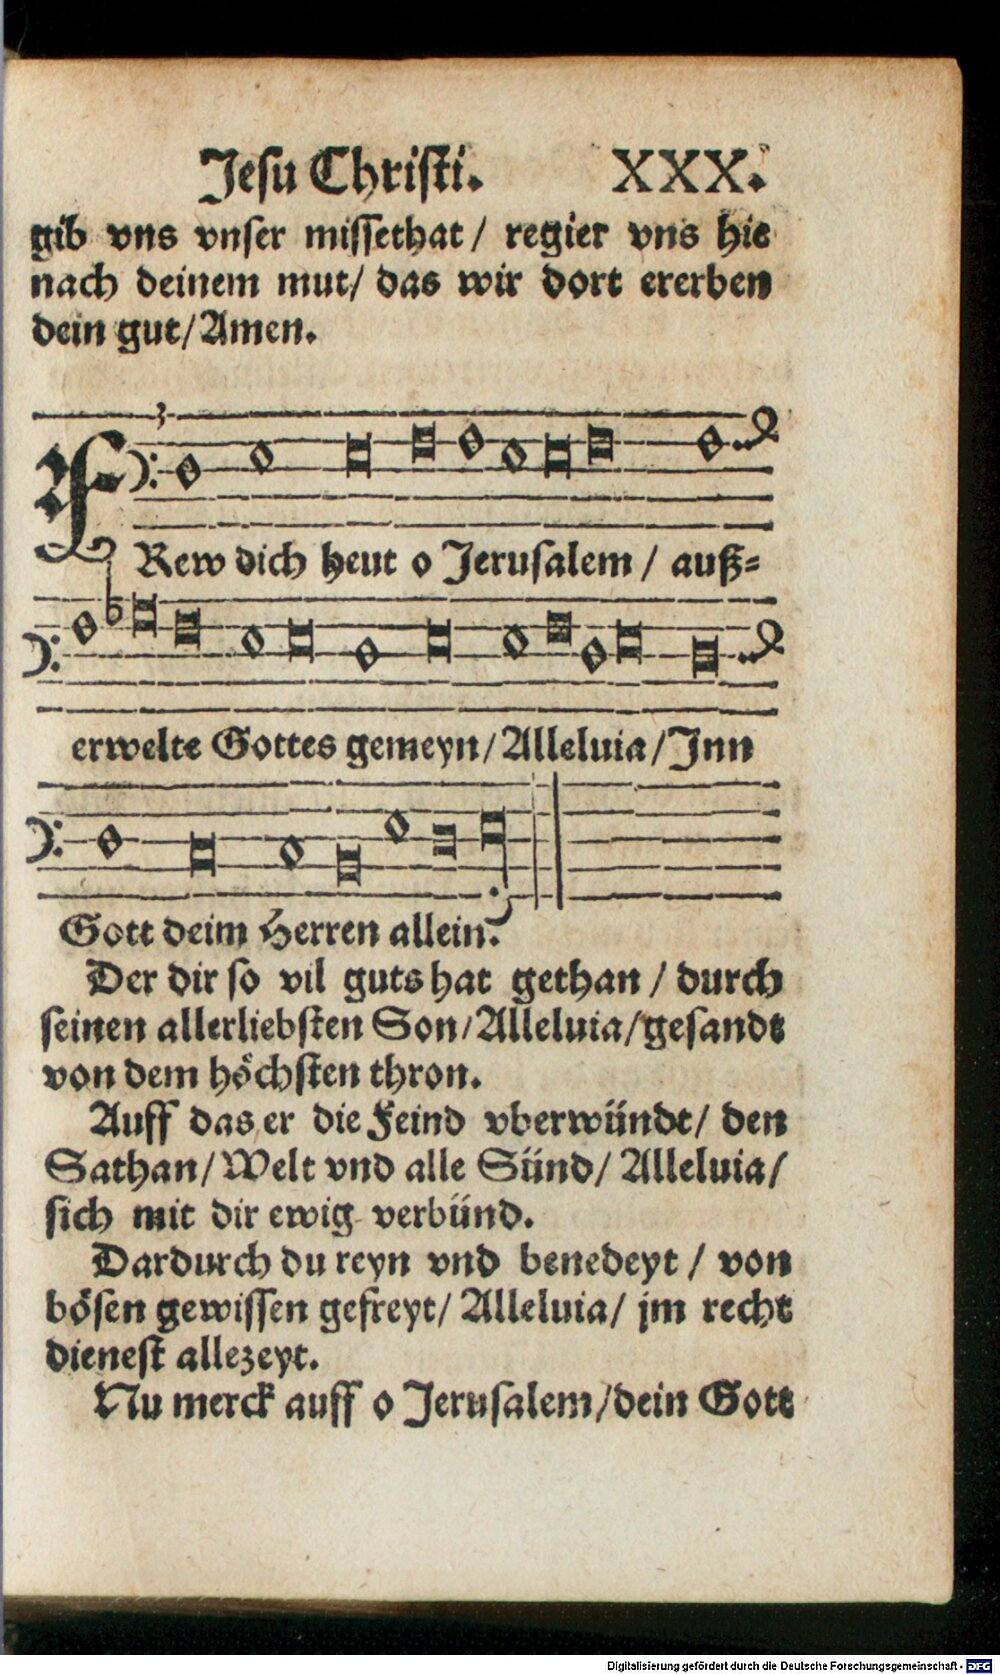 Jesu Christi. XXX.
gib vns vnser missethat / regier vns hie
nach deinem mut/ das wir dort ererben
dein gut/Amen.
FRew dich heut o Jerusalem / auß=
erwelte Gottes gemeyn/Alleluia/Inn
Gott deim Herren allein.
Der dir so vil guts hat gethan / durch
seinen allerliebsten Son/Alleluia/gesandt
von dem höchsten thron.
Auff das er die Feind vberwündt/ den
Sathan/Welt vnd alle Sünd/ Alleluia/
sich mit dir ewig verbünd.
Dardurch du reyn vnd benedeyt / von
bösen gewissen gefreyt/ Alleluia/ jm recht
dienest allezeyt.
Nu merck auff o Jerusalem/dein Gott
Digitalisierung gefördert durch die Deutsche Forschungsgemeinschaft - DFG